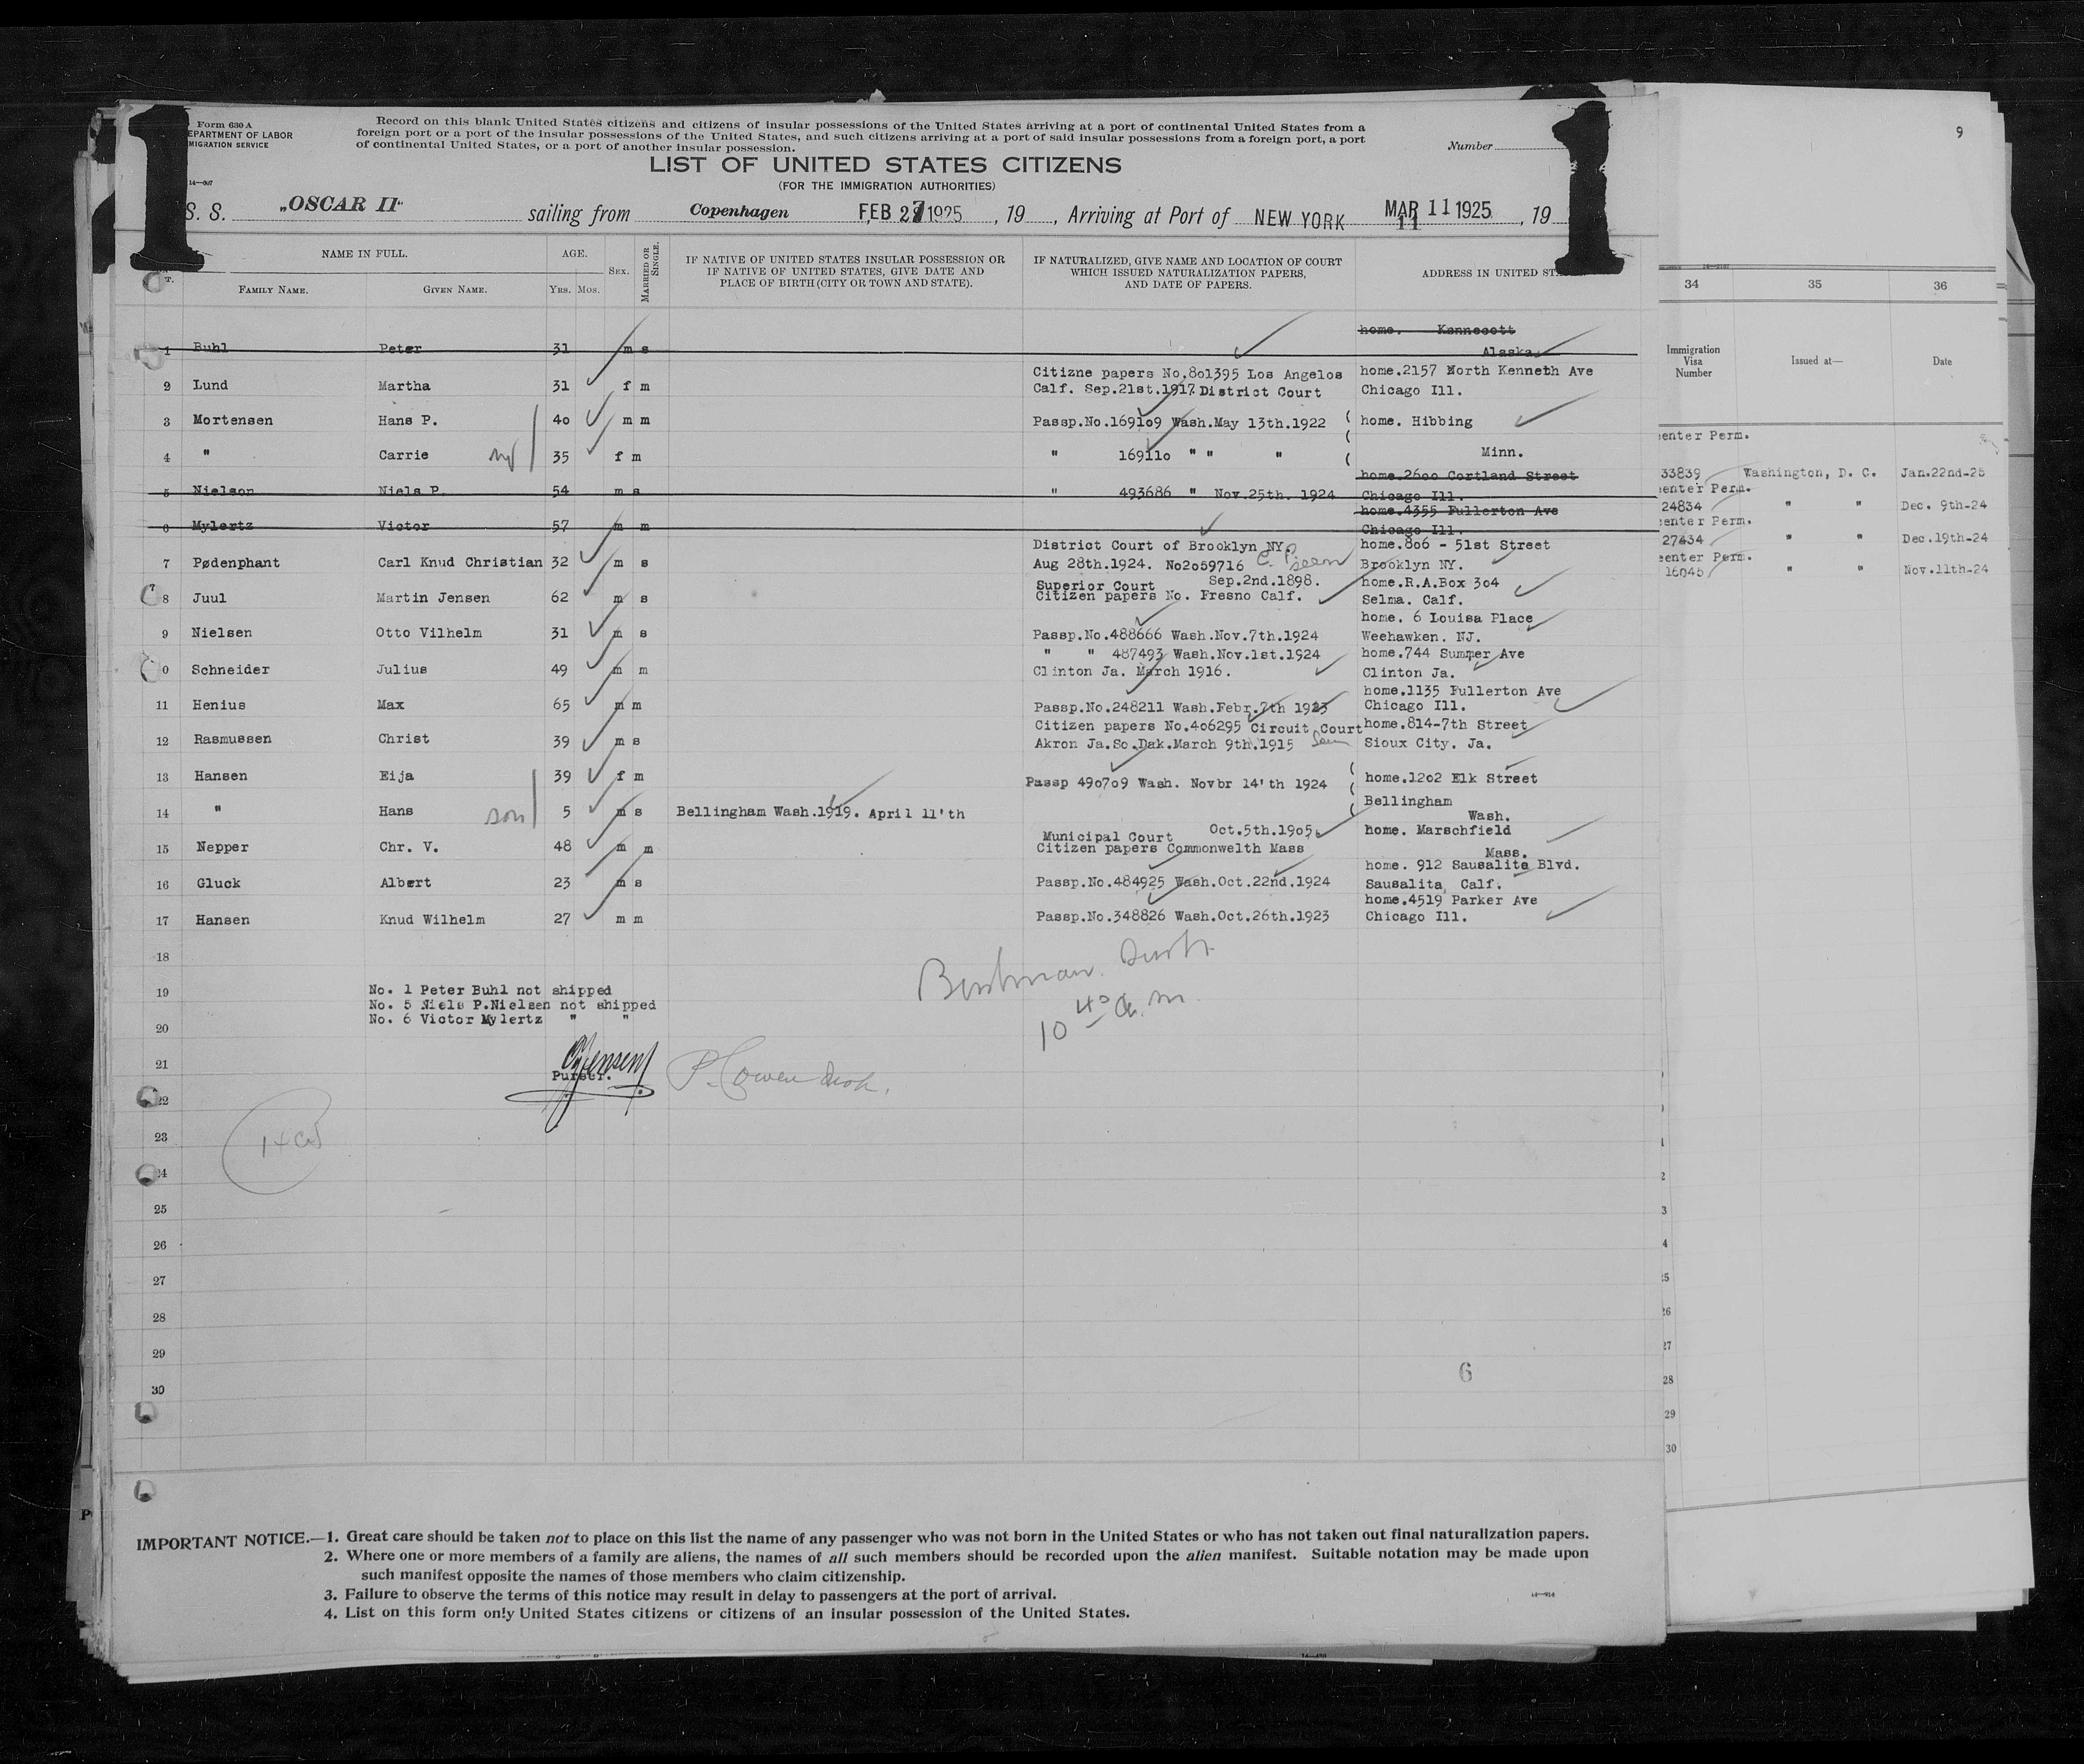 1
1
9
Form 630 A
EPARTMENT OF LABOR
MIGRATION SERVICE
14—687
Record on this blank United States citizens and citizens of insular possessions of the United States arriving at a port of continental United States from a
foreign port or a port of the insular possessions of the United States, and such citizens arriving at a port of said insular possessions from a foreign port, a port
of continental United States, or a port of another insular possession.
Number
LIST OF UNITED STATES CITIZENS
(FOR THE IMMIGRATION AUTHORITIES)
S. S. „OSCAR II" sailing from Copenhagen FEB 27 1925, 19 , Arriving at Port of NEW YORK MAR 11 1925, 19
11
NAME IN FULL. AGE. SEX. MARRIED OR SINGLE. IF NATIVE OF UNITED STATES INSULAR POSSESSION OR IF NATIVE OF UNITED STATES, GIVE DATE AND PLACE OF BIRTH (CITY OR TOWN AND STATE). IF NATURALIZED, GIVE NAME AND LOCATION OF COURT WHICH ISSUED NATURALIZATION PAPERS, AND DATE OF PAPERS. ADDRESS IN UNITED ST
FAMILY NAME. GIVEN NAME. YRS. MOS.
home. Kennecott
1 Buhl Peter 31 m s Alaska
Citizne papers No.801395 Los Angelos home.2157 North Kenneth Ave
2 Lund Martha 31 f m
Calf. Sep.21st.1917 District Court Chicago Ill.
3 Mortensen Hans P. 40 m m Passp.No.169109 Wash.May 13th.1922 ( home. Hibbing
(
4 " Carrie wf 35 f m " 169110 " " " ( Minn.
home.2600 Cortland Street
5 Nielsen Niels P. 54 m s " 493686 " Nov.25th. 1924 Chicago Ill.
home.4355 Fullerton Ave
6 Mylertz Victor 57 m m Chicago Ill.
District Court of Brooklyn NY. home.806 - 51st Street
7 Pødenphant Carl Knud Christian 32 m s Aug 28th.1924. No2059716 C. P. seen Brooklyn NY.
Superior Court Sep.2nd.1898. home.R.A.Box 304
7 8 Juul Martin Jensen 62 m s Citizen papers No. Fresno Calf. Selma. Calf.
home. 6 Louisa Place
9 Nielsen Otto Vilhelm 31 m s Passp.No.488666 Wash.Nov.7th.1924 Weehawken. NJ.
" " 487493 Wash.Nov.1st.1924 home.744 Summer Ave
0 Schneider Julius 49 m m Clinton Ja. March 1916. Clinton Ja.
home.1135 Fullerton Ave
11 Henius Max 65 m m Passp.No.248211 Wash.Febr.7th 1923 Chicago Ill.
Citizen papers No.406295 Circuit Court home.814-7th Street
12 Rasmussen Christ 39 m s Akron Ja.So.Dak.March 9th.1915 Seen Sioux City. Ja.
13 Hansen Eija 39 f m Passp 490709 Wash. Novbr 14'th 1924 ( home.1202 Elk Street
( Bellingham
14 " Hans son 5 m s Bellingham Wash.1919. April 11'th ( Wash.
Municipal Court Oct.5th.1905. home. Marschfield
15 Nepper Chr. V. 48 m m Citizen papers Commonwelth Mass Mass.
home. 912 Sausalita Blvd.
16 Gluck Albert 23 m s Passp.No.484925 Wash.Oct.22nd.1924 Sausalita, Calf.
home.4519 Parker Ave
17 Hansen Knud Wilhelm 27 m m Passp.No.348826 Wash.Oct.26th.1923 Chicago Ill.
18
19 No. 1 Peter Buhl not shipped
No. 5 Niels P.Nielsen not shipped
20 No. 6 Victor Mylertz " "
10 40 a. m.
21 Jensen P. Cowen
Purser.
22
23
24
25
26
27
28
29
6
30
34 35 36
Immigration Visa Number Issued at— Date
enter Perm.
33839 Washington, D. C. Jan.22nd-25
enter Perm.
24834 " " Dec. 9th-24
enter Perm.
27434 " " Dec.19th-24
enter Perm.
16045 " " Nov.11th-24
1
2
3
4
25
26
27
28
29
30
P
IMPORTANT NOTICE.—1. Great care should be taken not to place on this list the name of any passenger who was not born in the United States or who has not taken out final naturalization papers.
2. Where one or more members of a family are aliens, the names of all such members should be recorded upon the alien manifest. Suitable notation may be made upon
such manifest opposite the names of those members who claim citizenship.
3. Failure to observe the terms of this notice may result in delay to passengers at the port of arrival.
4. List on this form only United States citizens or citizens of an insular possession of the United States.
14—914